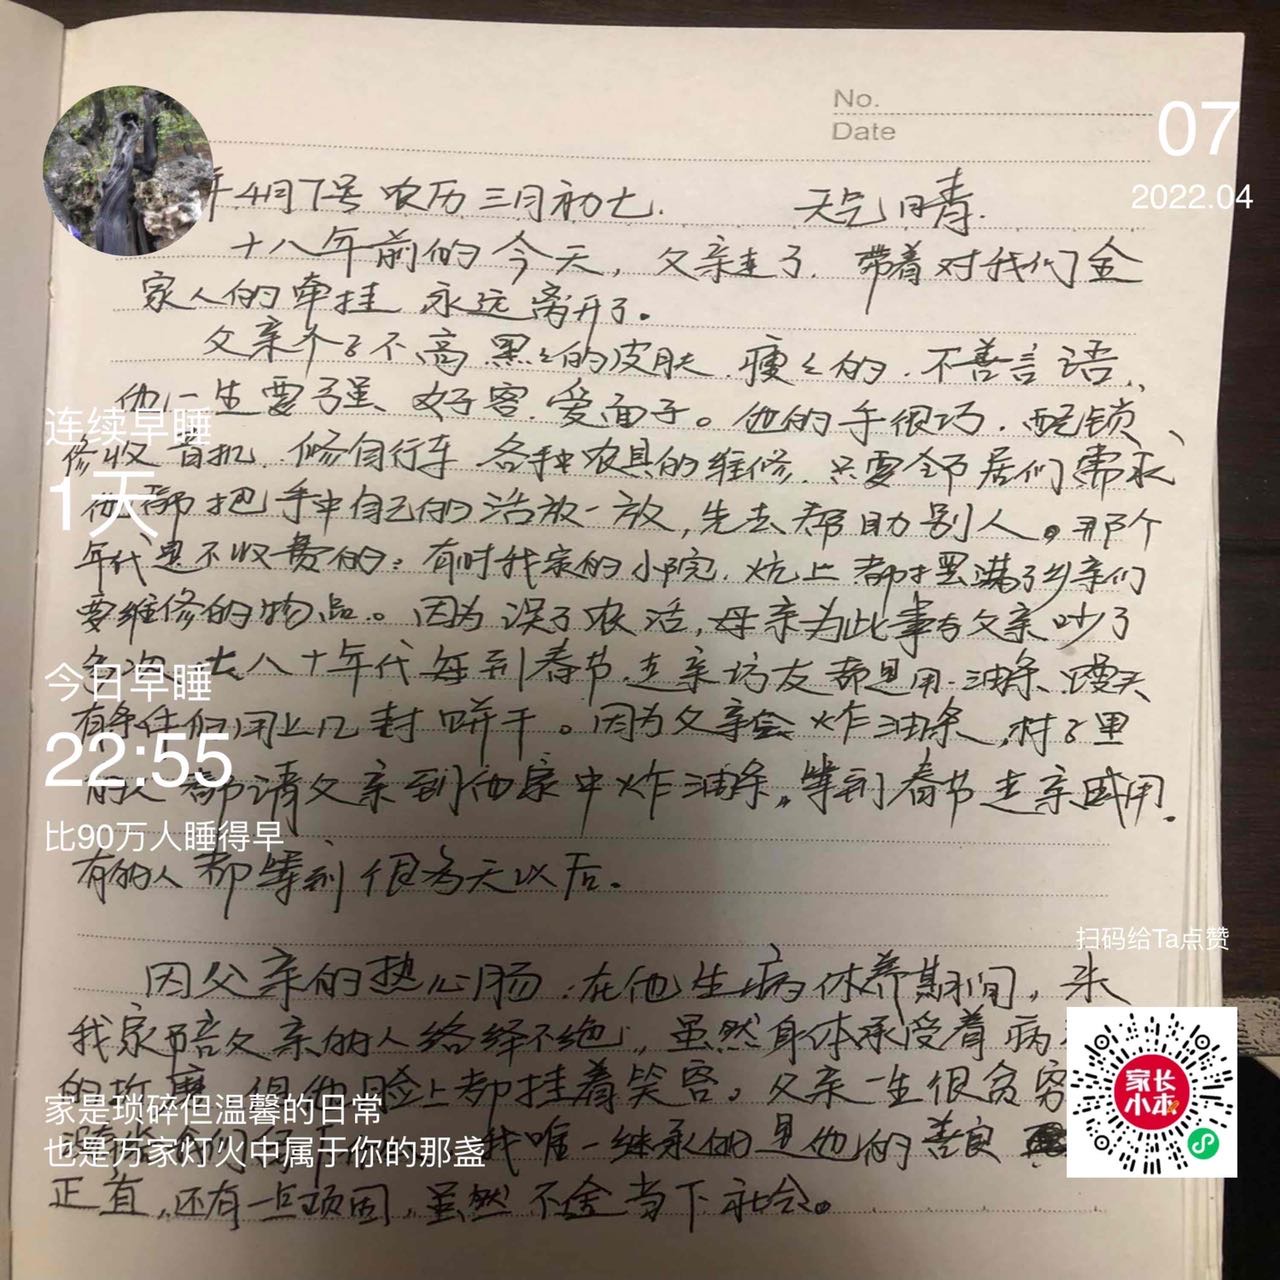 No.
Date
07
2022.04
年4月7号 农历三月初七. 天气晴.
十八年前的今天, 父亲走了. 带着对我们全
家人的牵挂 永远离开了。
父亲个子不高 黑々的皮肤. 瘦々的. 不善言语.
他一生要强 好客. 爱面子。他的手很巧. 配锁、
修收音机 修自行车 各种农具的维修. 只要邻居们需求
他都把手中自己的活放一放, 先去帮助别人。那个
年代是不收费的: 有时我家的小院. 炕上都摆满了乡亲们
要维修的物品。因为误了农活, 母亲为此事与父亲吵了
去八十年代每到春节. 走亲访友都是用油条、馒头
有条件们用上几封饼干。因为父亲会炸油条, 村子里
的人都请父亲到他家中炸油条。等到春节走亲戚用.
有的人都等到很多天以后.
因父亲的热心肠. 在他生病休养期间, 来
我家陪父亲的人络绎不绝, 虽然身体承受着病
的折磨 但他脸上都挂着笑容。父亲一生很贫穷
我唯一继承的是他的善良
正直, 还有一点顽固, 虽然不合当下社会。
连续早睡
1天
今日早睡
22:55
比90万人睡得早
家是琐碎但温馨的日常
也是万家灯火中属于你的那盏
扫码给Ta点赞
家长
小本